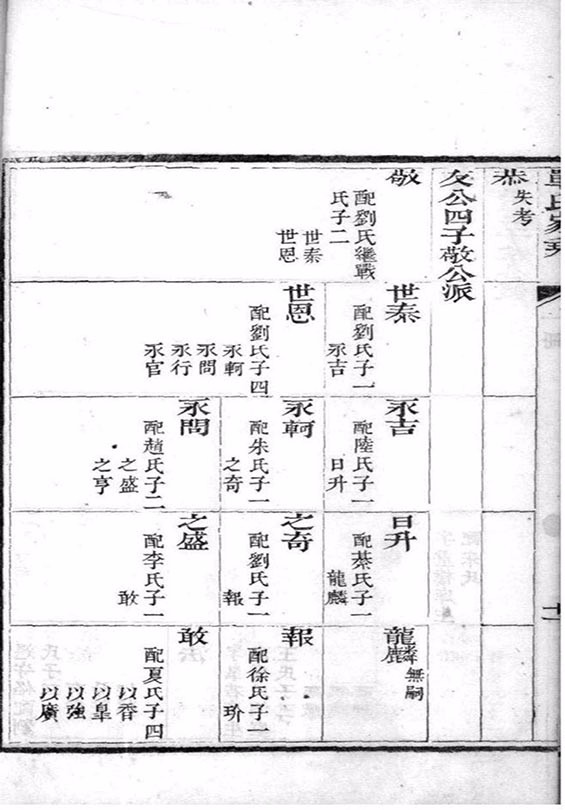 恭
失考
友公四子敬公派
敬
配劉氏繼戰
氏子二
世泰
世恩
世泰
配劉氏子一
永吉
世恩
配劉氏子四
永軻
永問
永行
永官
永吉
配陸氏子一
日升
永軻
配朱氏子一
之奇
永問
配趙氏子二
之盛
之亨
日升
配綦氏子一
龍麟
之奇
配劉氏子一
報
之盛
配李氏子一
敢
龍麟
無嗣
報
配徐氏子一
玠
敢
配夏氏子四
以香
以皐
以強
以廣